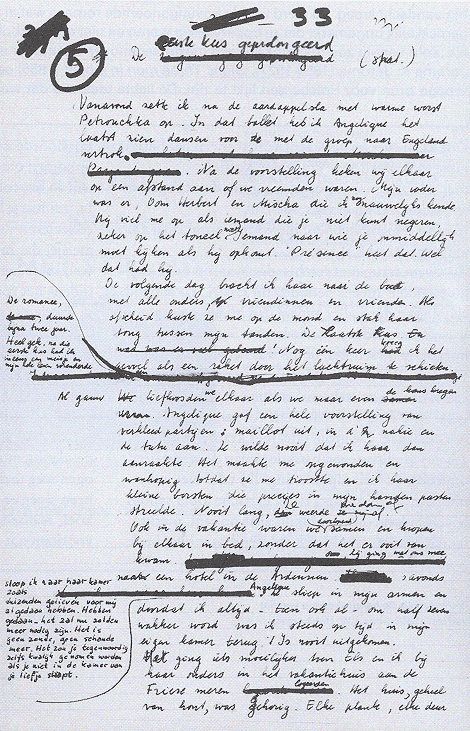 33
5
De eerste kus geprolongeerd
Vanavond zette ik na de aardappelsla met warme worst
Petrouchka op. In dat ballet heb ik Angelique het
laatst zien dansen voor ze met de groep naar Engeland
vertrok.
Na de voorstelling keken wij elkaar
op een afstand aan of we vreemden waren. Mijn vader
was er, Oom Herbert en Mischa die ik nog nauwelijks kende.
Hij viel me op als iemand die je niet kunt negeren
zeker op het toneel niet. Iemand naar wie je onmiddellijk
moet kijken als hij opkomt. 'Presence' heet dat. Wel
dat had hij.
De volgende dag bracht ik haar naar de boot,
met alle ouders, vriendinnen en vrienden. Als
afscheid kuste ze me op de mond en stak haar
tong tussen mijn tanden. De laatste kus
Nog één keer kreeg ik het
gevoel als een raket door het luchtruim te schieten
De romance,
duurde
bijna twee jaar.
Heel gek, na die
eerste kus had ik
Al gauw liefkoosden we elkaar als we maar even de kans kregen
Angelique gaf een hele voorstelling van
verkleedpartijen: maillot uit, in d'r nakie en
de tutu aan. Ze wilde nooit dat ik haar dan
aanraakte. Het maakte me opgewonden en
wanhopig totdat ze me troostte en ik haar
kleine borsten die precies in mijn handen pasten
streelde. Nooit lang, dan werde
Ook in de vakantie waren we samen en kropen
bij elkaar in bed, zonder dat het er ooit van
kwam. ging met ons mee
naar een hotel in de Ardennen. 's avonds
sloop ik naar haar kamer
zoals
duizenden gelieven voor mij
al gedaan hebben. Hebben
gedaan - het zal nu zelden
meer nodig zijn. Het is
geen zonde, geen schande
meer. Het zou je tegenwoordig
zelfs kwalijk genomen worden
als je niet in de kamer van
je liefje slaapt.
Angelique sliep in mijn armen en
doordat ik altijd - toen ook al - om half zeven
wakker word was ik steeds op tijd in mijn
eigen kamer terug. 't Is nooit uitgekomen.
Het ging iets moeilijker toen Els en ik bij
haar ouders in het vakantiehuis aan de
Friese meren logeerden. Het huis, geheel
van hout, was gehorig. Elke plank, elke deur